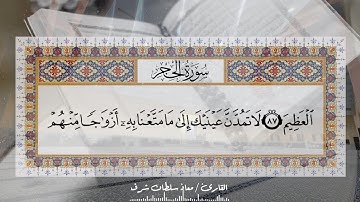 سُورَةُ الْحِجْرِ
الْعَظِيمَ ٨٧ لَا تَمُدَّنَّ عَيْنَيْكَ إِلَىٰ مَا مَتَّعْنَا بِهِۦٓ أَزْوَٰجًا مِّنْهُمْ
القارئ / معاذ سلطان شرف